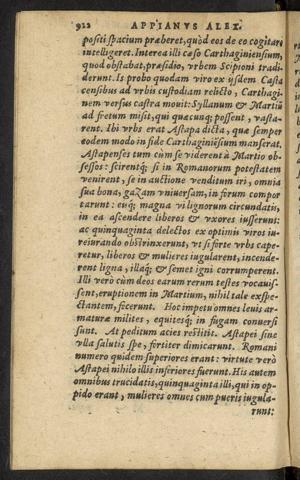 922 APPIANVS ALEX.
posti spacium præberet, quòd eos de eo cogitare
intelligeret. Interea illi cæso Carthaginensium,
quod obstabat, præsidio, vrbem Scipioni tradi-
derunt. Is probo quodam viro ex ijsdem Casta
censibus ad vrbis custodiam relicto, Carthagi-
nem versus castra mouit: Syllanum & Martiū
ad fretum misit, qui quæcunq; possent, vasta-
rent. Ibi vrbs erat Astapa dicta, quæ semper
eodem modo in fide Carthaginiēsium manserat.
Astapenses tum cùm se viderent à Martio ob-
sessos: scirentq́; si in Romanorum potestatem
venirent, se in auctione venditum iri, omnia
sua bona, gazam vniuersam, in forum compor
tarunt: eúq; magna vi lignorum circundatis,
in ea ascendere liberos & vxores iusserunt:
ac quinquaginta delectos ex optimis viros iu-
reiurando obstrinxerunt, vt si forte vrbs cape-
retur, liberos & mulieres iugularent, incende-
rent ligna, illáq; & semet igni corrumperent.
Illi verò cùm deos earum rerum testes vocauis-
sent, eruptionem in Martium, nihil tale exspe-
ctantem, fecerunt. Hoc impetu omnes leuis ar-
maturæ militer, equitesq; in fugam conuersi
sunt. At peditum acies restitit. Astapei sine
vlla salutis spe, fortiter dimicarunt. Romani
numero quidem superiores erant: virtute verò
Astapei nihilo illis inferiores fuerunt. His autem
omnibus trucidatis, quinquaginta illi, qui in op-
pido erant, mulieres omnes cum pueris iugula-
runt: